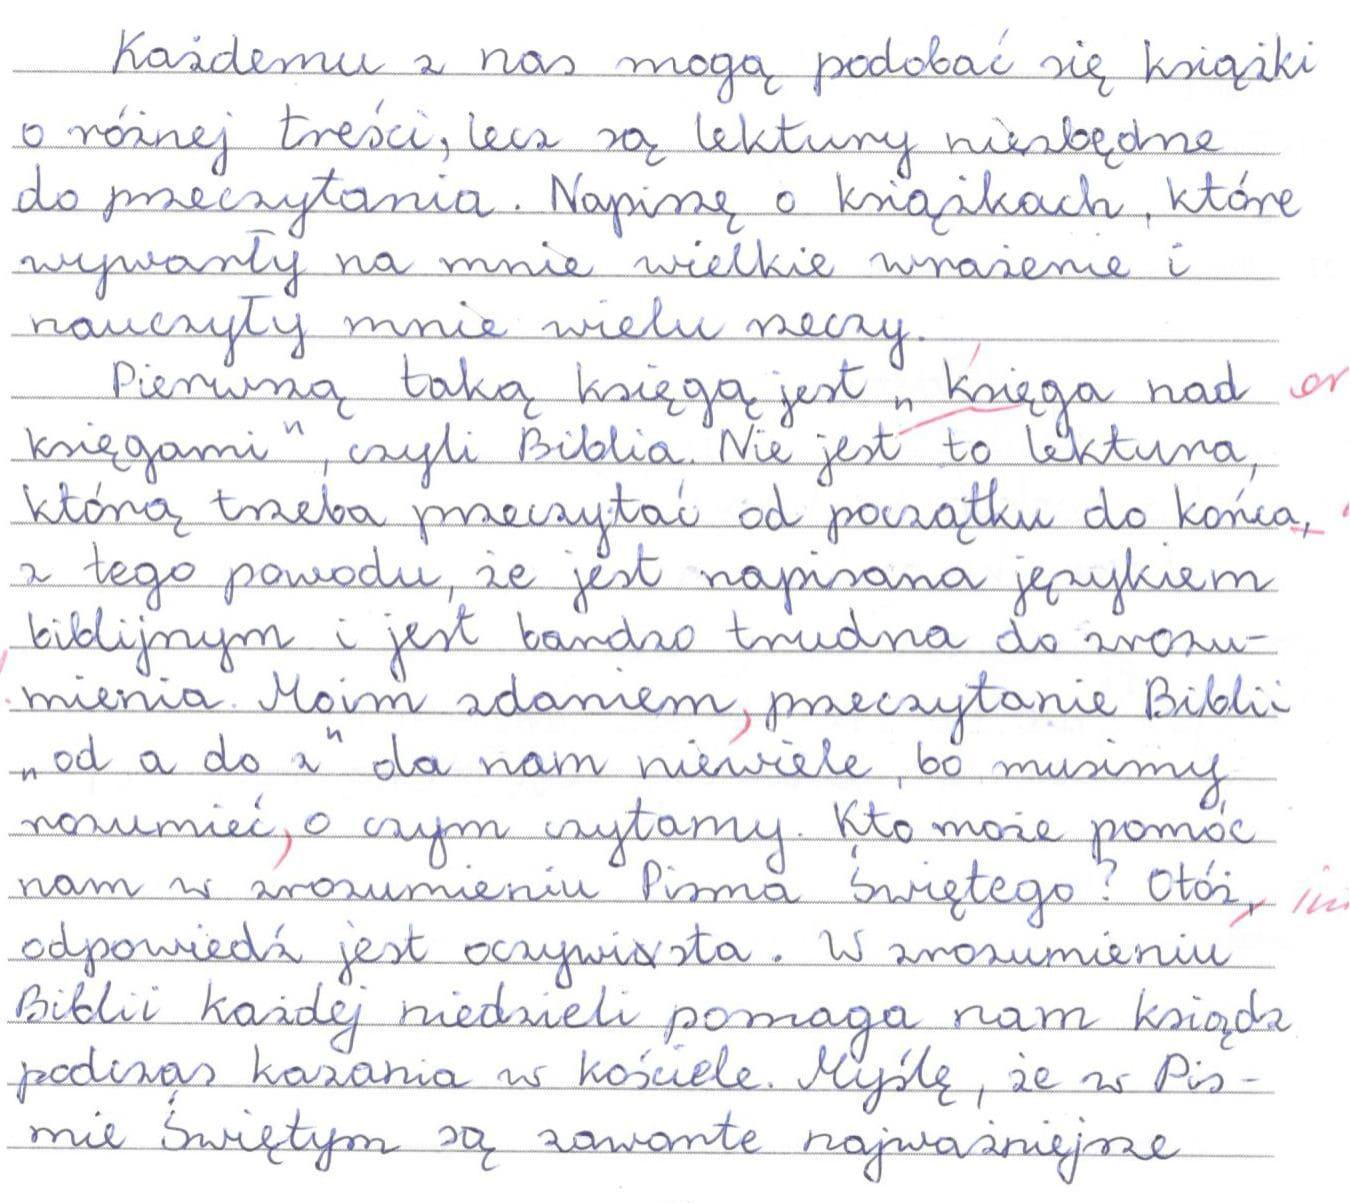 Każdemu z nas mogą podobać się książki
o różnej treści, lecz są lektury niezbędne
do przeczytania. Napiszę o książkach, które
wywarły na mnie wielkie wrażenie i
nauczyły mnie wielu rzeczy.
Pierwszą taką księgą jest „księga nad or
księgami", czyli Biblia. Nie jest to lektura,
którą trzeba przeczytać od początku do końca,
z tego powodu, że jest napisana językiem
biblijnym i jest bardzo trudna do zrozu-
mienia. Moim zdaniem, przeczytanie Biblii
„od a do z" da nam niewiele, bo musimy
rozumieć, o czym czytamy. Kto może pomóc
nam w zrozumieniu Pisma Świętego? Otóż,
odpowiedź jest oczywista. W zrozumieniu
Biblii każdej niedzieli pomaga nam ksiądz
podczas kazania w kościele. Myślę, że w Piś-
mie Świętym są zawarte najważniejsze